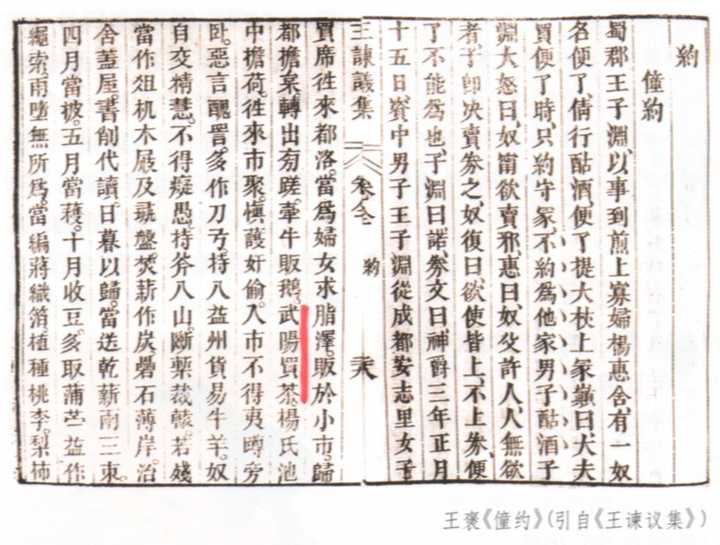 約
僮約
蜀郡王子淵、以事到煎上寡婦楊惠舍、有一奴
名便了、倩行酤酒、便了提大杖上冢巔曰、大夫
買便了時、只約守冢、不約為他家男子酤酒、子
淵大怒曰、奴甯欲賣邪、惠曰、奴父許人、人無欲
者、子卽决賣券之、奴復曰、欲使皆上、不上券、便
了不能為也、子淵曰諾、券文曰、神爵三年正月
十五日、資中男子王子淵、從成都安志里女子
王諫議集 卷全 約
買席徃來都洛。當為婦女求脂澤。販於小市。歸
都擔枲。轉出旁蹉。牽牛販鵝。武陽買茶。楊氏池
中擔荷。徃來市聚。慎護奸偷。入市不得夷蹲旁
臥。惡言醜罵。多作刀弓。持入益州。貨易牛羊。奴
自交精慧。不得癡愚。持斧入山。斷槧裁轅。若殘
當作俎机木屐及彘盤。焚薪作炭。礨石薄岸。治
舍蓋屋。書削代讀。日暮以歸。當送乾薪兩三束。
四月當披。五月當穫。十月收豆。多取蒲苧。益作
繩索。雨墮無所為。當編蔣織箔。植種桃李。梨柿
王褒《僮约》(引自《王谏议集》)